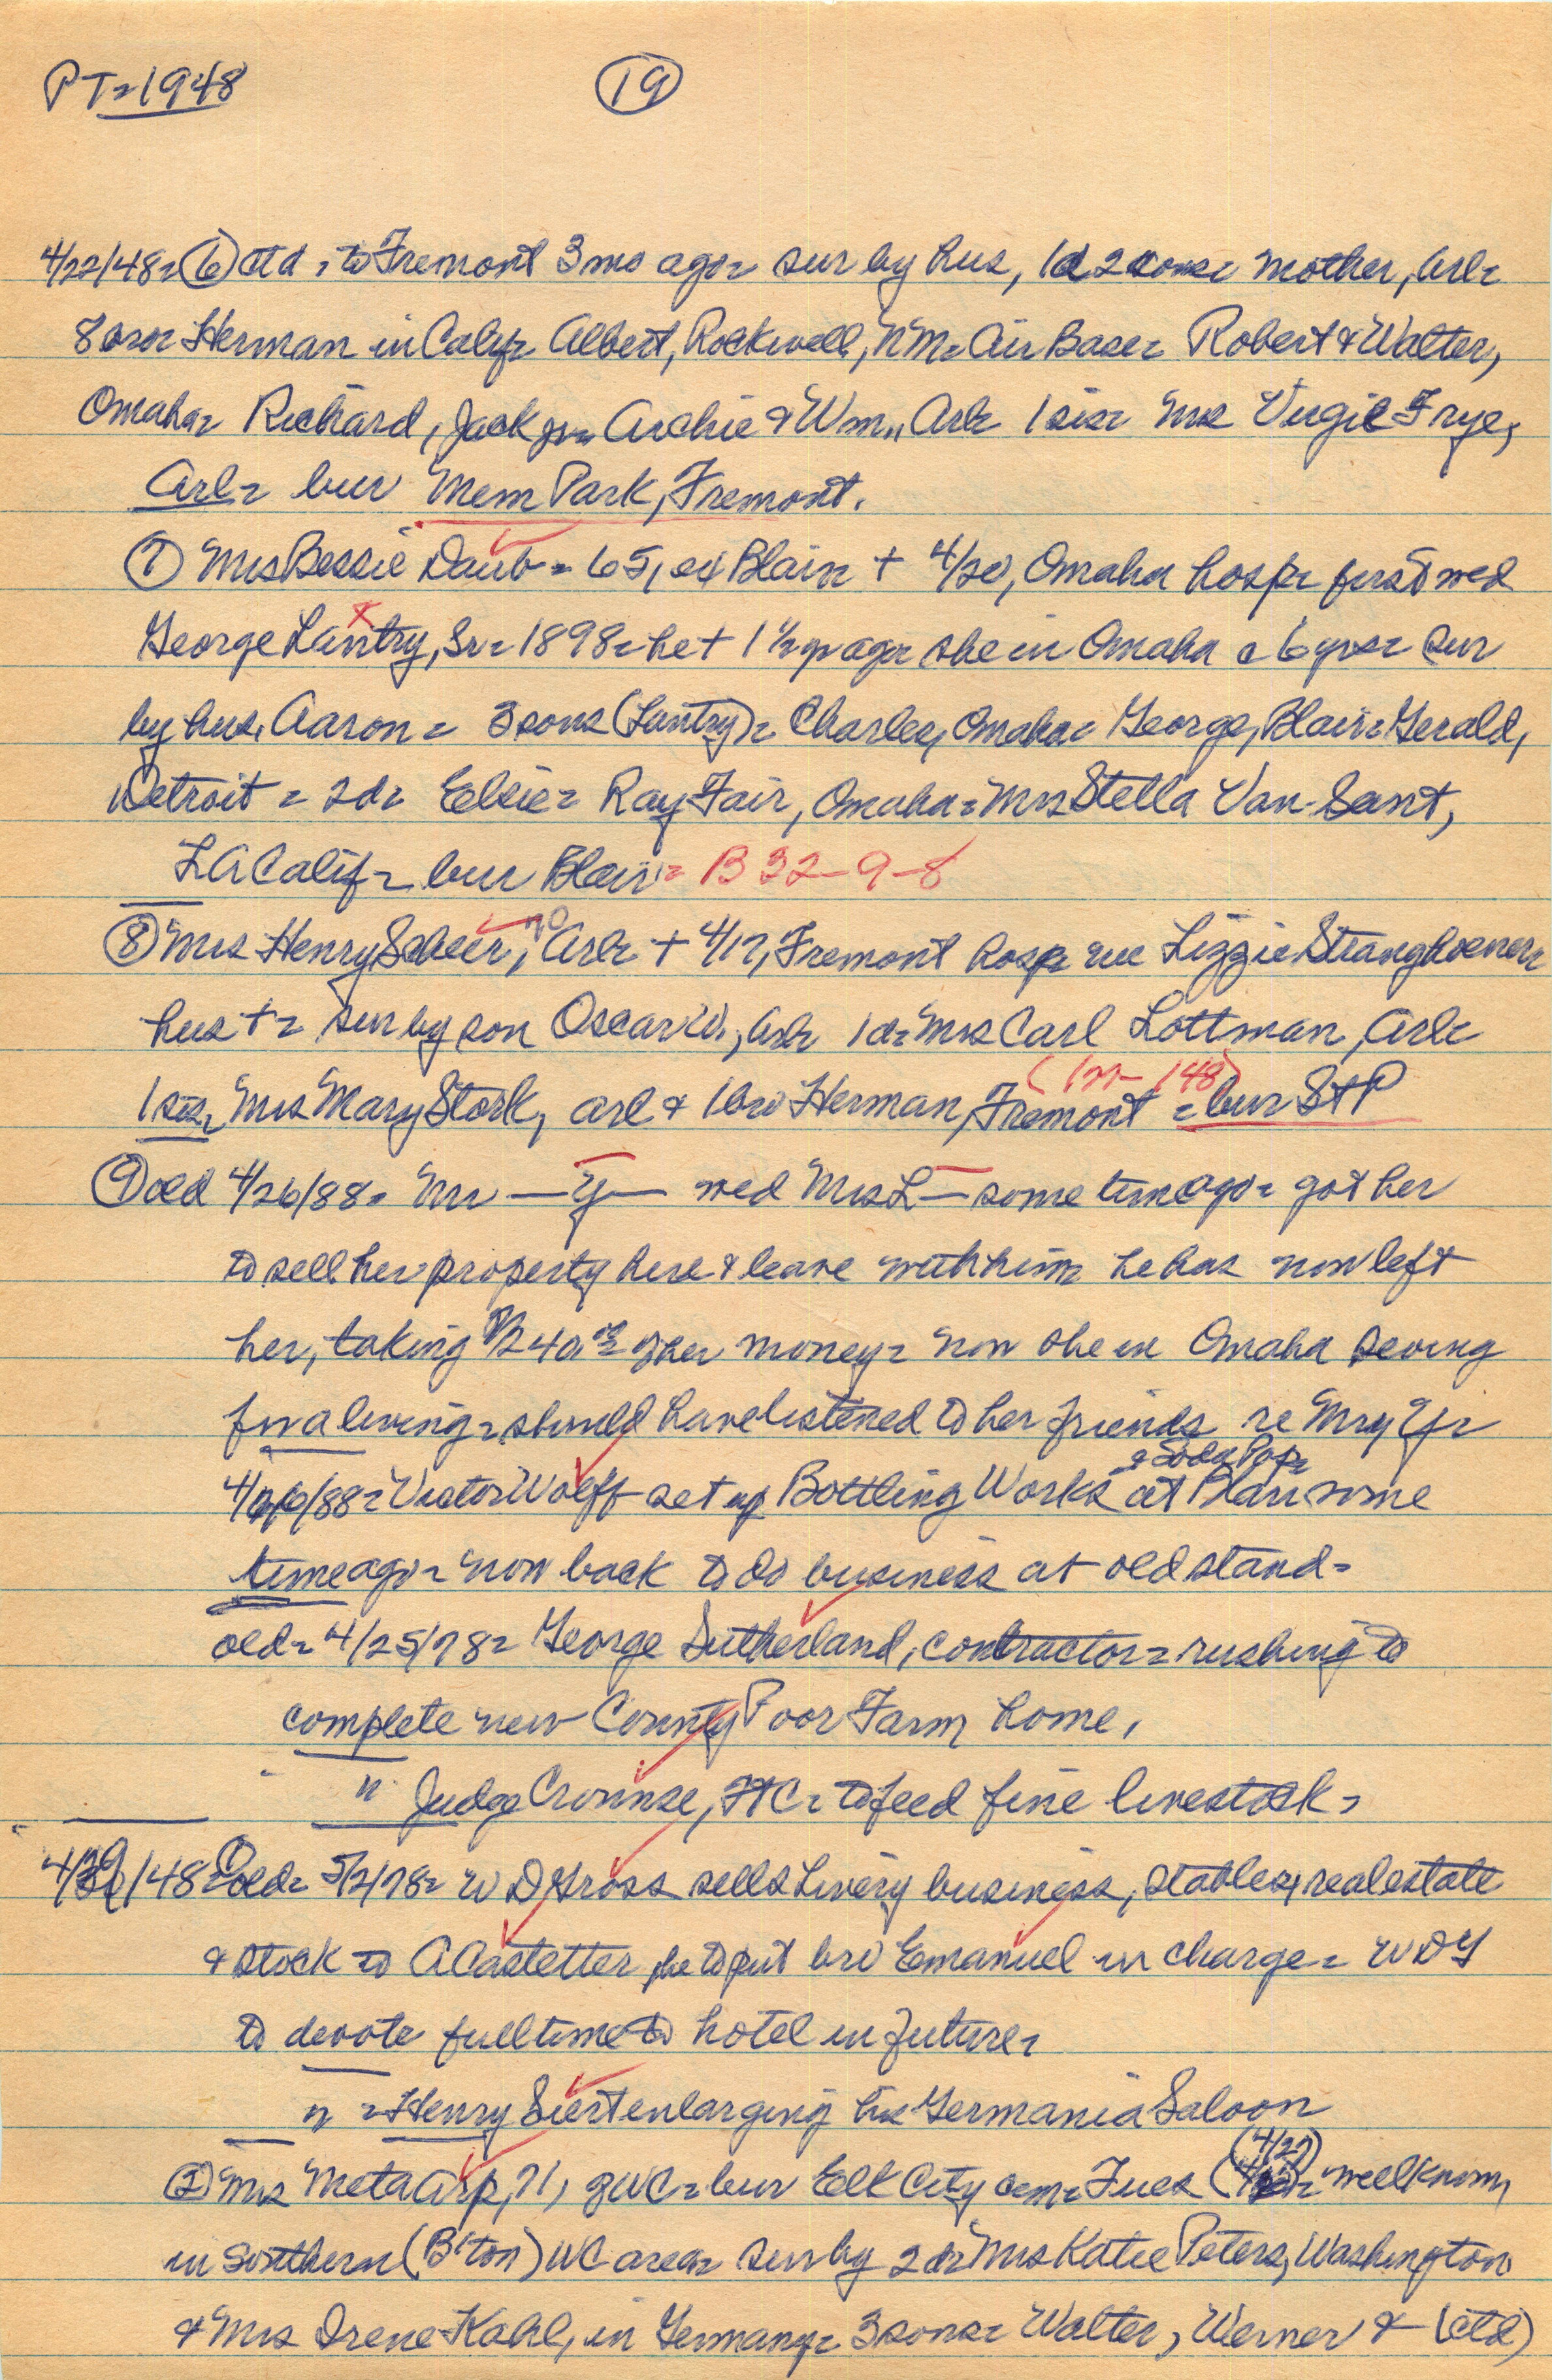 PT=1948 19
4/22/48= 6 ctd = to Fremont 3 mo ago= sur by hus, 1d 2 sons= mother, Arl=
8 bro= Herman in Calif= Albert, Rockwell, NM= Air Base= Robert & Walter,
Omaha= Richard, Jack jr= Archie & Wm., Arl= 1 sis= Mrs Virgil Frye,
Arl= bur Mem Park, Fremont.
7 Mrs Bessie Daub = 65, ex Blair + 4/20, Omaha hosp= first wed
George Lantry, Sr= 1898= he + 1 1/2 yr ago= she in Omaha c 6 yrs= sur
by hus. Aaron = 3 sons (Lantry)= Charles, Omaha= George, Blair= Gerald,
Detroit = 2d= Elsie= Ray Fair, Omaha= Mrs Stella Van Sant,
LA Calif= bur Blair= B 32-9-8
8 Mrs Henry Scheer, 70 Arl= + 4/17, Fremont hosp= nee Lizzie Stranghoener=
hus += sur by son Oscar W., Arl= 1d= Mrs Carl Lottman, Arl=
1 sis= Mrs Mary Stork, Arl & 1 bro Herman, Fremont = bur St P
(177- 148)
9 old 4/26/88= Mr — Y — wed Mrs L — some time ago= got her
to sell her property here & leave with him= he has now left
her, taking $240.00 of her money= now she in Omaha sewing
for a living= should have listened to her friends re Mr Y=
4/26/88= Victor Wolff set up Bottling Works & Soda Pop= at Blair some
time ago= now back to do business at old stand=
old= 4/25/78= George Sutherland, contractor= rushing to
complete new County Poor Farm home,
" Judge Crounse, FtC= to feed fine livestock=
4/29/48= 1 old= 5/2/78= W D Gross sells Livery business, stables, real estate
& stock to A Castetter, he to put bro Emanuel in charge= W D G
to devote full time to hotel in future=
" = Henry Siert enlarging his Germania Saloon
2 Mrs Meta Arp, 71, of WC= bur Elk City cem= Tues (4/27)= well known
in southern (B'ton) WC area= sur by 2 d= Mrs Katie Peters, Washington
& Mrs Irene Kahl, in Germany= 3 sons= Walter, Werner & (ctd)